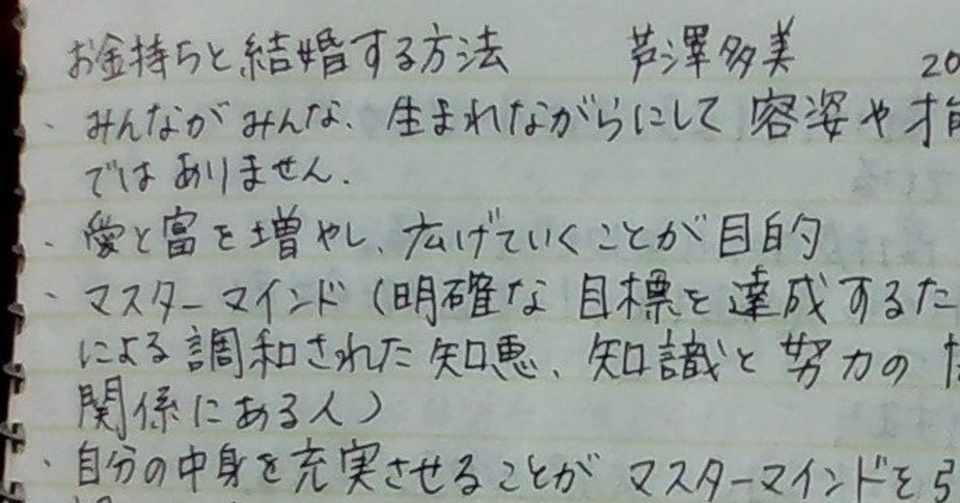 お金持ちと結婚する方法 芦澤多美 20
・みんながみんな、生まれながらにして容姿や才
ではありません.
・愛と富を増やし、広げていくことが目的
・マスターマインド(明確な目標を達成するた
による調和された知恵、知識と努力の
関係にある人)
・自分の中身を充実させることがマスターマインドを